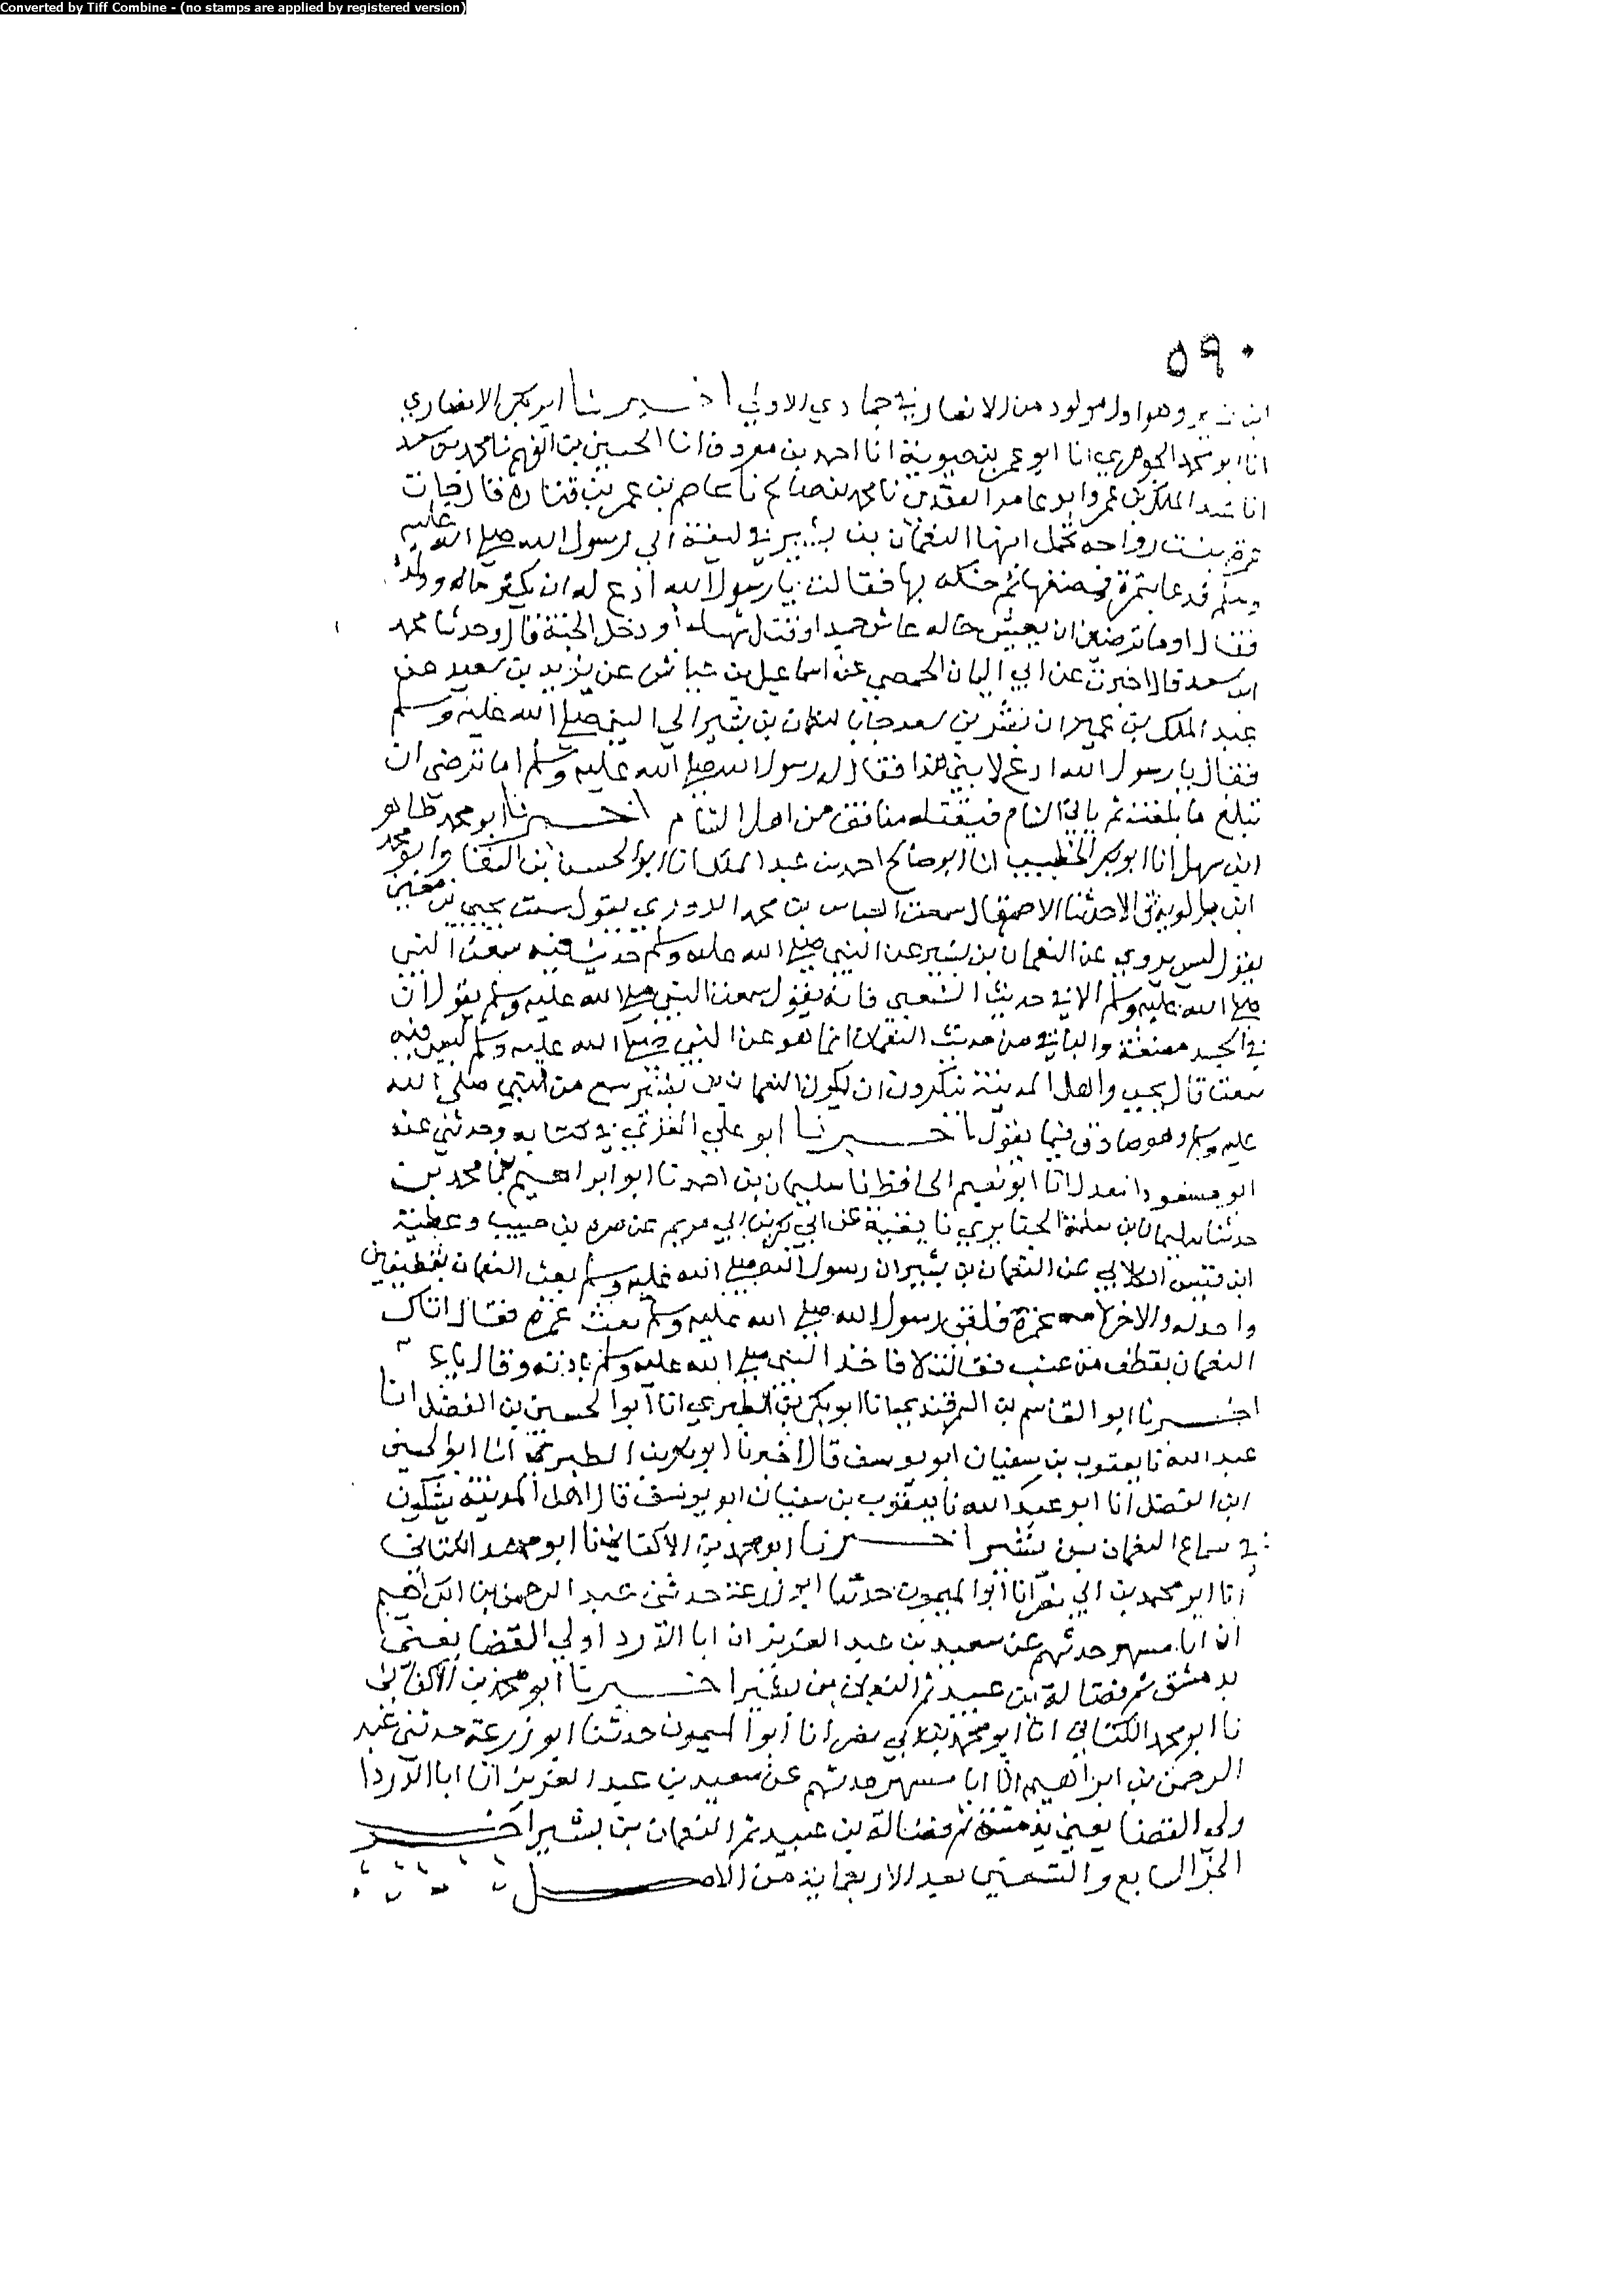 Converted by Tiff Combine - (no stamps are applied by registered version)
٥٩٠
ابن بشير وهو اول مولود من الانصار في جمادي الاولي اخبرنا ابو بكر الانصاري
انا ابو محمد الجوهري انا ابو عمر بن حيوية انا احمد بن معروف انا الحسين بن الفهم نا محمد بن سعد
انا عبد الملك بن عمرو ابو عامر العقدي نا محمد بن صالح نا عاصم بن عمر بن قتادة قال جات
عمرة بنت رواحه تحمل ابنها النعمان بن بشير في ليفة الي رسول الله صلي الله عليه
وسلم فدعا بتمرة فمضغها ثم حنكه بها فقالت يا رسول الله ادع له ان يكثر ماله وولده
فقال اوما ترضين ان يعيش خاله عاش حميدا وقتل شهيدا ودخل الجنة قال وحدثنا محمد
ابن سعد قال اخبرت عن ابي اليمان الحمصي عن اسماعيل بن عياش عن يزيد بن سعيد عن
عبد الملك بن عمير ان بشر بن سعد جا بالنعمان بن بشير الي النبي صلي الله عليه وسلم
فقال يا رسول الله ادع لابني هذا فقال له رسول الله صلي الله عليه وسلم اما ترضي ان
تبلغ ما بلغت ثم ياتي الشام فيقتله منافق من اهل الشام اخبرنا ابو محمد طاهر
ابن سهل انا ابو بكر الخطيب انا ابو صالح احمد بن عبد الملك انا ابو الحسن بن السقا وابو محمد
ابن بالوية قالا حدثنا الاصم قال سمعت العباس بن محمد الدوري يقول سمعت يحيي بن معين
يقول ليس يروي عن النعمان بن بشير عن النبي صلي الله عليه وسلم حديث فيه سمعت النبي
صلي الله عليه وسلم الا في حديث الشعبي فانه يقول سمعت النبي صلي الله عليه وسلم يقول ان
في الجسد مضغة والباقي من حديث النعمان انما هو عن النبي صلي الله عليه وسلم ليس فيه
سمعت قال يحيي واهل المدينة ينكرون ان يكون النعمان بن بشير سمع من النبي صلي الله
عليه وسلم وهو صادق فيما يقول اخبرنا ابو علي المقري في كتابه وحدثني عنه
ابو مسعود المعدل انا ابو نعيم الحافظ نا سليمان بن احمد نا ابو ابراهيم بن محمد بن
حدثنا سليمان بن سلمة الخبايري نا بقية عن ابي بكر بن ابي مريم عن ضمرة بن حبيب وعطية
ابن قيس الكلابي عن النعمان بن بشير ان رسول الله صلي الله عليه وسلم بعث النعمان بقطيفين
واحد له والاخر لامه عمرة فلقي رسول الله صلي الله عليه وسلم بعث عمرة فقال اتاك
النعمان بقطف من عنب فقالت لا فاخذ النبي صلي الله عليه وسلم باذنه وقال يا
اخبرنا ابو القاسم بن السمرقندي انا ابو بكر بن الطبري انا ابو الحسين بن الفضل انا
عبد الله نا يعقوب بن سفيان ابو يوسف قال اخبرنا ابو بكر بن الطبري انا ابو الحسين
ابن الفضل انا ابو عبد الله نا يعقوب بن سفيان ابو يوسف قال اهل المدينة يشكون
في سماع النعمان بن بشير اخبرنا ابو محمد بن الاكفاني نا ابو محمد الكتاني
انا ابو محمد بن ابي نصر انا ابو الميمون حدثنا ابو زرعة حدثني عبد الرحمن بن ابراهيم
ان ابا مسهر حدثهم عن سعيد بن عبد العزيز ان ابا الدرد اولي القضا يعني
بدمشق ثم فضالة بن عبيد ثم النعمان بن بشير اخبرنا ابو محمد بن الاكفاني
نا ابو محمد الكتاني انا ابو محمد بن ابي نصر انا ابو الميمون حدثنا ابو زرعة حدثني عبد
الرحمن بن ابراهيم ان ابا مسهر حدثهم عن سعيد بن عبد العزيز ان ابا الدردا
ولي القضا يعني بدمشق ثم فضالة بن عبيد ثم النعمان بن بشير اخر
الجز السابع والتسعين بعد الاربعماية من الاصل